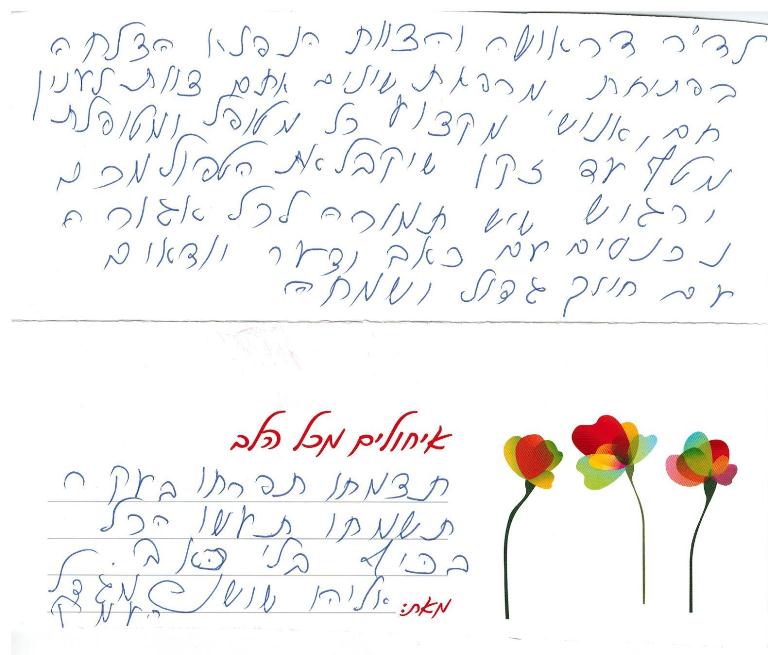 לד"ר דראושה והצוות הנפלא הצלחה
בפתיחת מרפאת שינים אתם צוות לענין
חם, אנושי מקצועי כל מטופל ומטופלת
מטף עד זקן שיקבל את הטפול מכם
ירגיש שיש תמורה לכל אגורה
נכנסים עם כאב וצער ויוצאים
עם חיוך גדול ושמחה
איחולים מכל הלב
תצמחו תפרחו בענק ה
תשמחו תעשו הכל
בכיף בלי כאב.
מאת: אליהו שושני מגדל
העמק